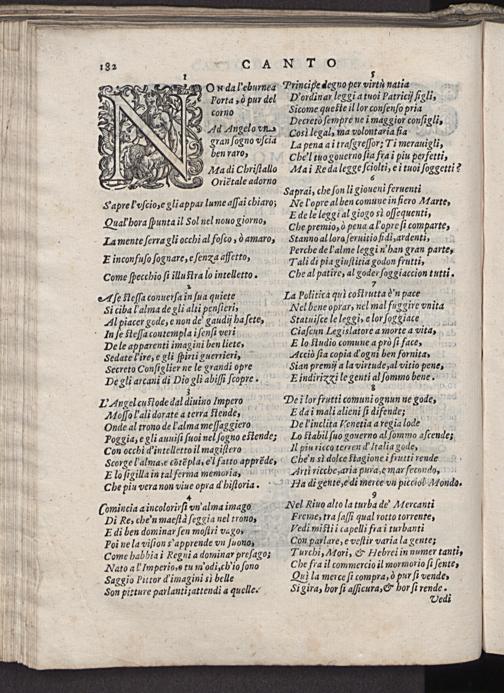 182
CANTO
1
NON da l'eburnea
Porta, ò pur del
corno
Ad Angelo vn
gran sogno vscia
ben raro,
Ma di Christallo
Oriẽtale adorno
S'apre l'vscio, e gli appar lume assai chiaro;
Qual'hora spunta il Sol nel nouo giorno,
La mente serra gli occhi al fosco, ò amaro,
E inconfuso sognare, e senza affetto,
Come specchio si illustra lo intelletto.
2
A se stessa conuersa in sua quiete
Si ciba l'alma de gli alti pensieri,
Al piacer gode, e non de' gaudij ha sete,
In se stessa contempla i sensi veri
De le apparenti imagini ben liete,
Sedate l'ire, e gli spirti guerrieri,
Secreto Consiglier ne le grandi opre
De gli arcani di Dio gli abissi scopre.
3
L'Angel custode dal diuino Impero
Mosso l'ali dorate a terra stende,
Onde al trono de l'alma messaggiero
Poggia, e gli auuisi suoi nel sogno estende;
Con occhi d'intelletto il magistero
Scorge l'alma, e cõtẽpla, e'l fatto apprẽde,
E lo sigilla in tal ferma memoria,
Che piu vera non viue opra d'historia.
4
Comincia a incolorirsi vn'alma imago
Di Re, ch'è'n maestà seggia nel trono,
E di ben dominar sen mostri vago,
Poi ne la vision s'apprende vn suono,
Come habbia i Regni a dominar presago;
Nato a l'Imperio, e tu m'odi, ch'io sono
Saggio Pittor d'imagini sì belle
Son pitture parlanti; attendi a quelle.
5
Principe degno per virtù natia
D'ordinar leggi a tuoi Patricij figli,
Sicome queste il lor consenso pria
Decretò sempre ne i maggior consigli,
Così legal, ma volontaria sia
La pena a i trasgressor; Ti merauigli,
Che'l tuo gouerno sia fra i piu perfetti,
Ma i Re da legge sciolti, e i tuoi soggetti?
6
Saprai, che son li gioueni feruenti
Ne l'opre al ben comune in fiero Marte,
E de le leggi al giogo sì ossequenti,
Che premio, ò pena a l'opre si comparte,
Stanno al loro seruitio fidi, ardenti,
Perche de l'alme leggi n'han gran parte,
Tali di pia giustitia godon frutti,
Che al patire, al goder soggiaccion tutti.
7
La Politica quì costrutta è'n pace
Nel bene oprar, nel mal fuggire vnita
Statuisce le leggi, e lor soggiace
Ciascun Legislatore a morte a vita,
E lo studio comune a prò si face,
Acciò sia copia d'ogni ben fornita,
Sian premij a la virtude, al vitio pene,
E indirizzi le genti al sommo bene.
8
De i lor frutti comuni ognun ne gode,
E da i mali alieni si difende;
De l'inclita Venetia a regia lode
Lo stabil suo gouerno al sommo ascende;
Il piu ricco terren d'Italia gode,
Che'n sì dolce stagione i frutti rende
Arti ricche, aria pura, e mar fecondo,
Ha di gente, e di merce vn picciol Mondo.
9
Nel Riuo alto la turba de' Mercanti
Freme, tra sassi qual rotto torrente,
Vedi misti i capelli fra i turbanti
Con parlare, e vestir varia la gente;
Turchi, Mori, & Hebrei in numer tanti,
Che fra il commercio il mormorio si sente,
Quì la merce si compra, ò pur si vende,
Si gira, hor si assicura, & hor si rende.
Vedi